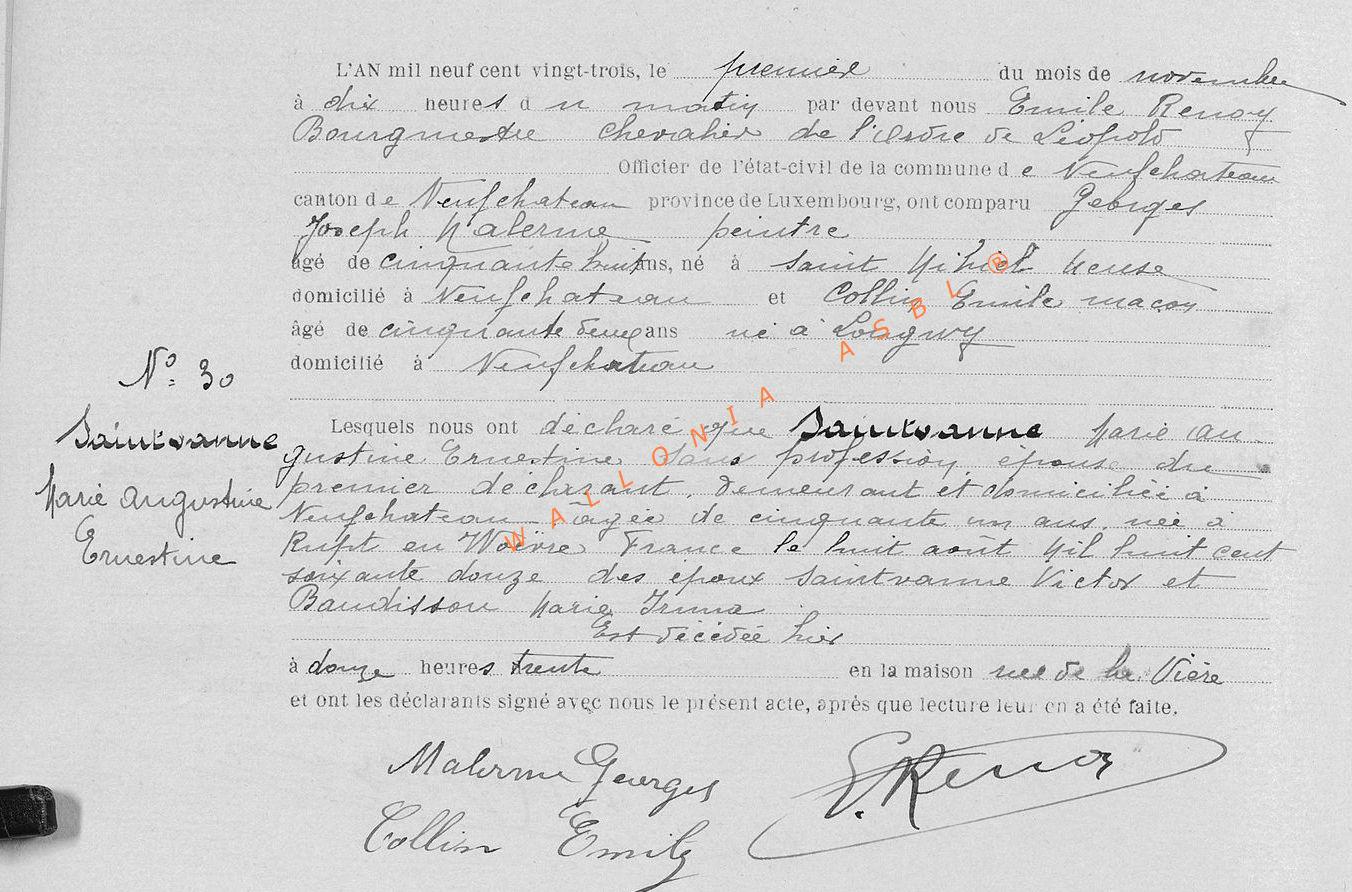 L'AN mil neuf cent vingt-trois, le premier du mois de novembre
à dix heures du matin par devant nous Emile Renoy
Bourgmestre Chevalier de l'Ordre de Léopold
Officier de l'état-civil de la commune de Neufchateau
canton de Neufchateau province de Luxembourg, ont comparu Georges
Joseph Malerme peintre
âgé de cinquante huit ans, né à Saint Mihiel Meuse
domicilié à Neufchateau et Collin Emile maçon
âgé de cinquante deux ans né à Longwy
domicilié à Neufchateau
N° 30
Saintvanne
Marie Augustine
Ernestine
Lesquels nous ont déclaré que Saintvanne Marie Au-
gustine Ernestine sans profession, épouse du
premier déclarant, demeurant et domiciliée à
Neufchateau âgée de cinquante un ans, née à
Rupt en Woëvre France le huit août Mil huit cent
soixante douze des époux Saintvanne Victor et
Baudisson Marie Irma
Est décédée hier
à douze heures trente en la maison rue de la Vière
et ont les déclarants signé avec nous le présent acte, après que lecture leur en a été faite.
Malerme Georges
E. Renoy
Collin Emile
WALLONIA ASBL ®